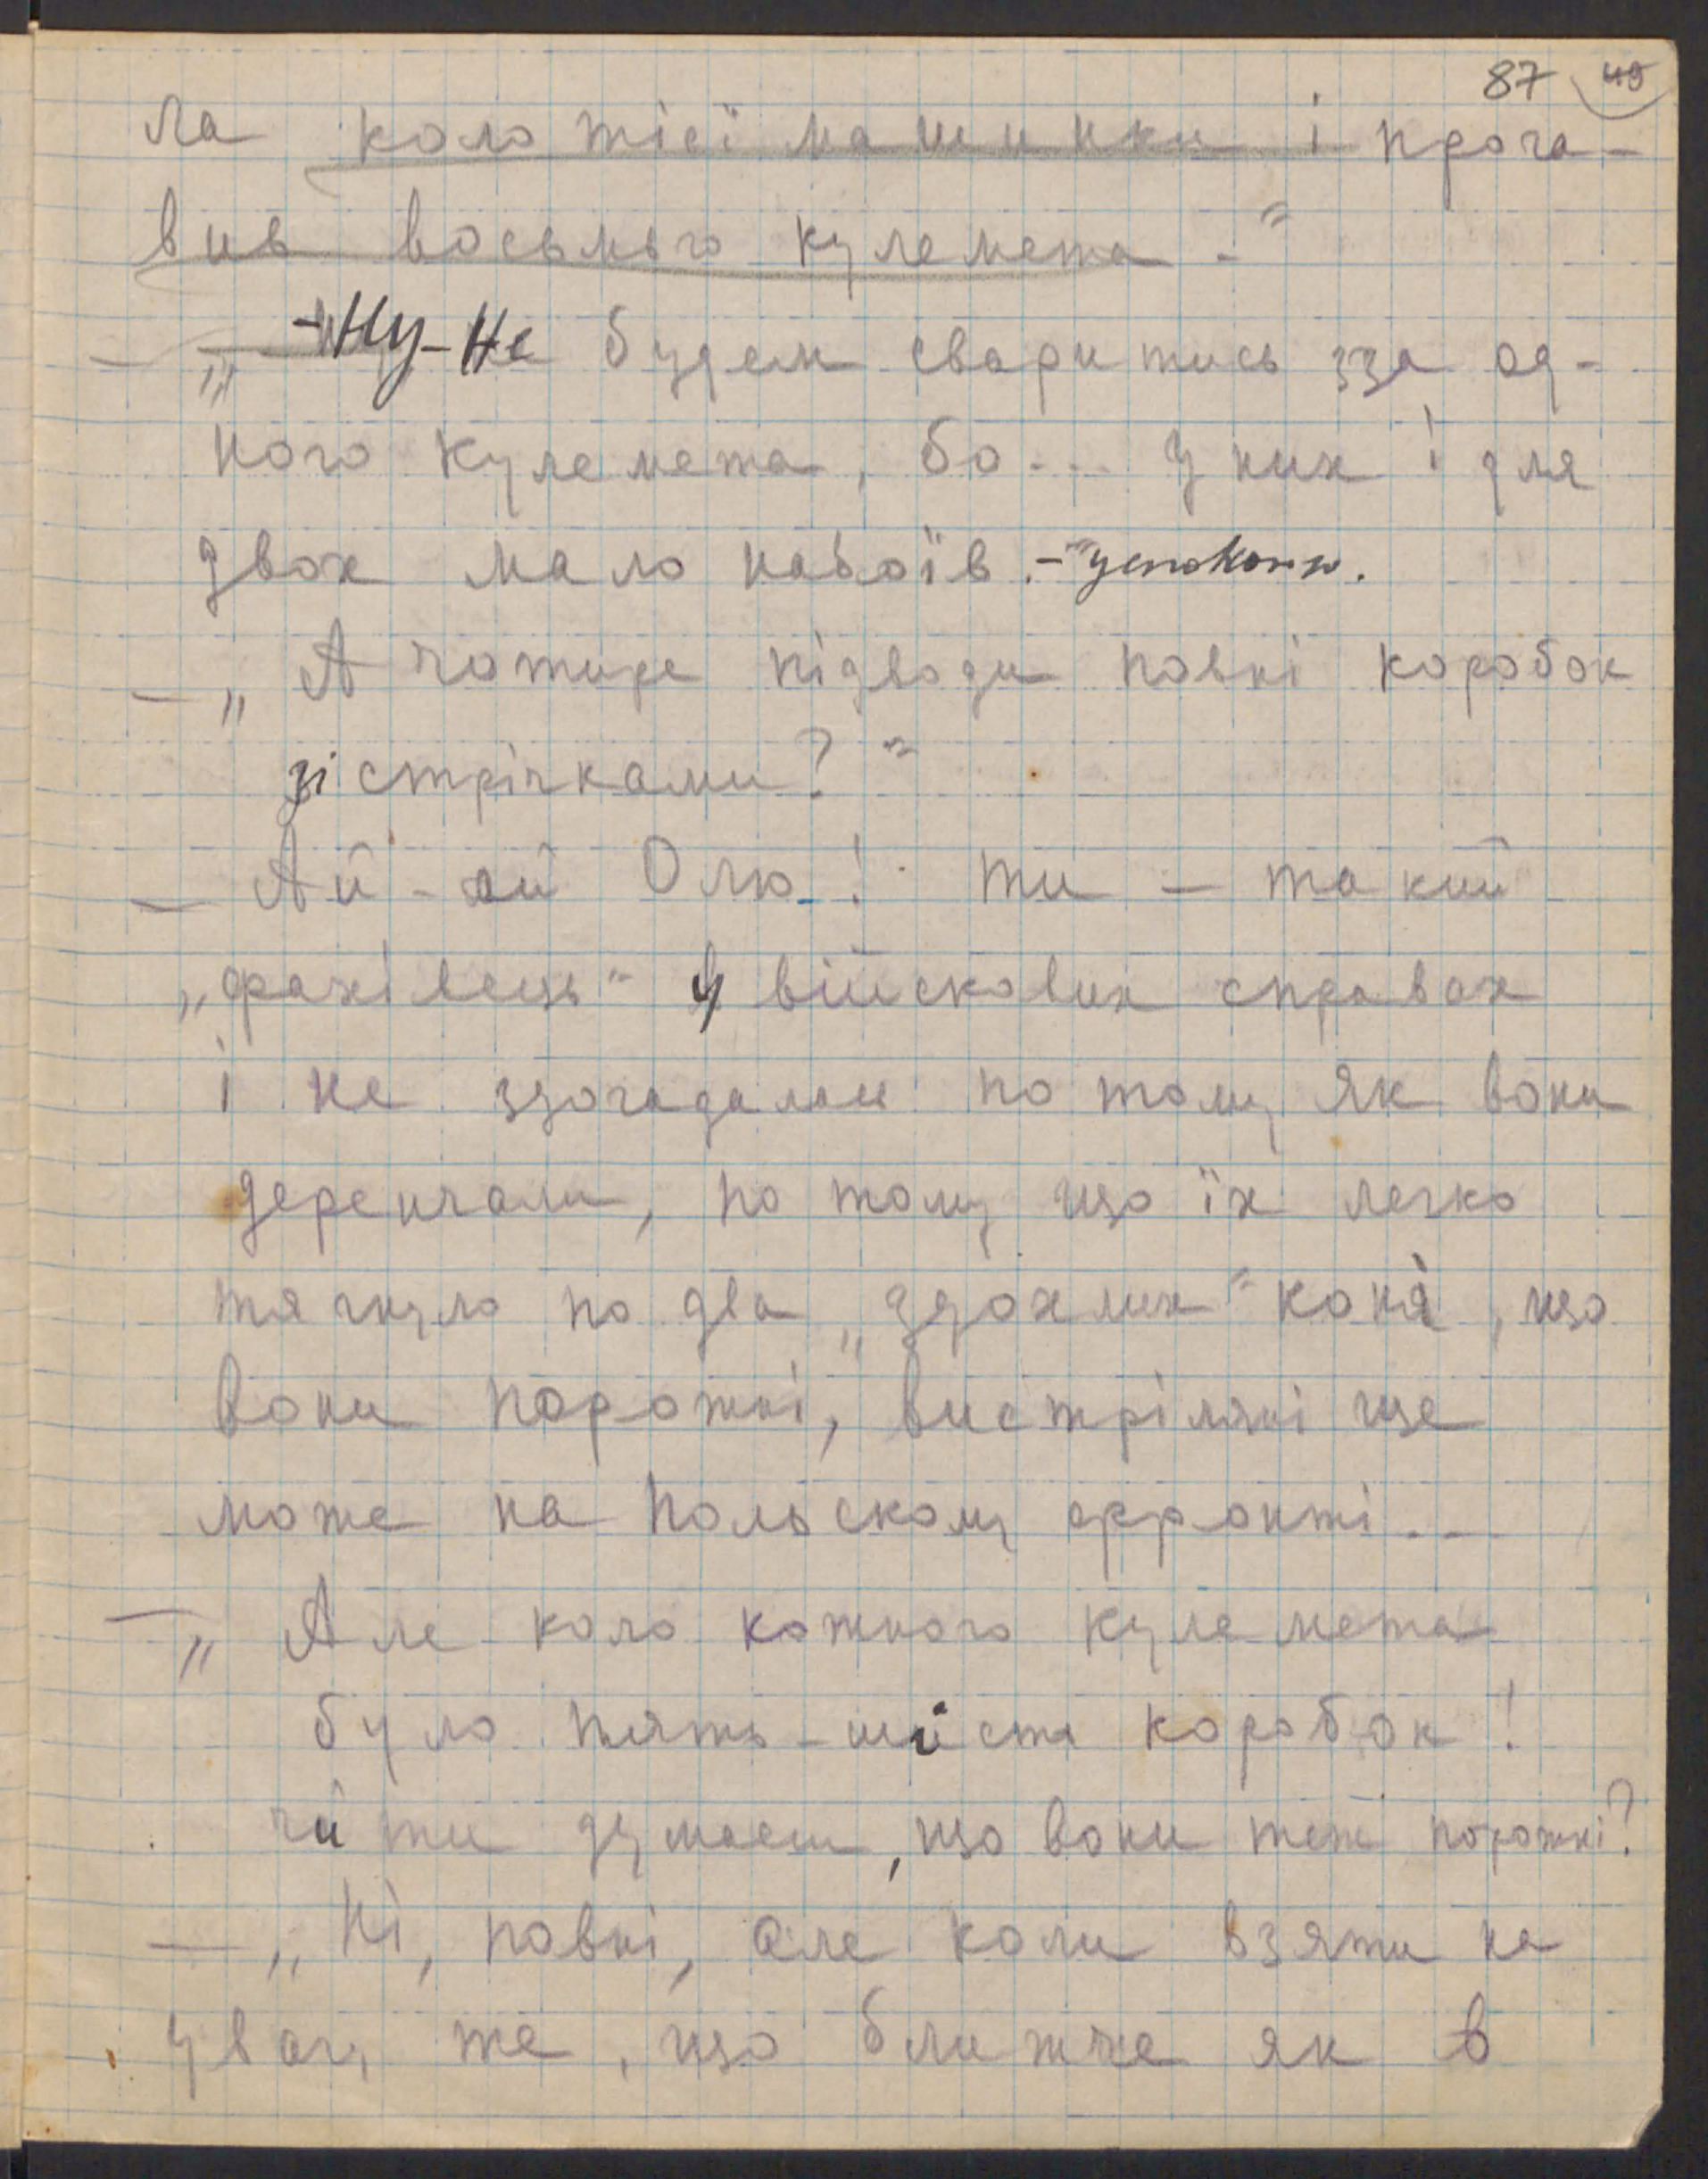 87 49
ла коло тієї машинки і прога-
вив восьмого кулемета.“
— „-Ну-Не будем сваритись зза од-
ного кулемета, бо... у них і для
двох мало набоїв.-“
— „А чотире підводи повні коробок
зі стрічками?“
— Ай-ай Олю! ти — такий
„фахівець“ у військових справах
і не здогадалась по тому як вони
деренчали, по тому що їх легко
тягнуло по два „здохлих“ коня, що
вони порожні, вистріляні ще
може на Польскому фронті...
— „Але коло кожного кулемета
було пять-шість коробок!
чи ти думаєш, що вони теж порожні?
— „Ні, повні, але коли взяти на
увагу те, що ближче як в